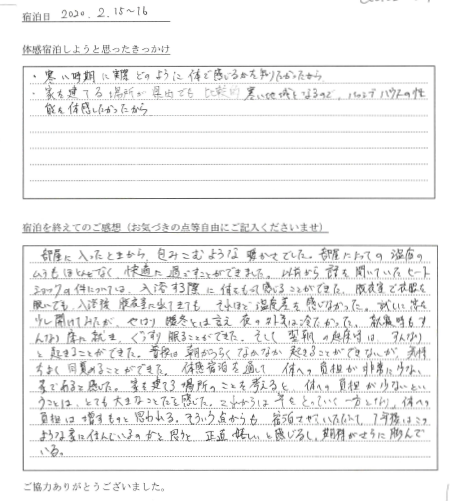 宿泊日 2020.2.15~16
体感宿泊しようと思ったきっかけ
・寒い時期に実際どのように体で感じるかを知りたかったから
・家を建てる場所が県内でも比較的寒い地域となるので、ハウスの性
能を体感したかったから
宿泊を終えてのご感想（お気づきの点等自由にご記入くださいませ）
部屋に入ったときから、包みこむような暖かさでした。部屋によっての温度の
ムラもほとんどなく、快適に過ごすことができました。以前から話を聞いていたヒート
ショックの件については、入浴する際に何とも感じることができた。脱衣室で衣服を
脱いでも、入浴後脱衣室に出てきても、それほど温度差を感じなかった。試しに窓を
少し開けてみたが、やはり暖冬とは言え夜の外気は冷たかった。就寝時もす
んなり床に就き、ぐっすり眠ることができた。そして翌朝の起床時は、すんなり
と起きることができた。普段は朝からなかなか起きることができないが、気持
ちよく目覚めることができた。体感宿泊を通して、体への負担が非常に少ない
家であると感じた。家を建てる場所のことを考えると、体への負担が少ないとい
うことは、とても大事なことだと感じた。これからは年をとっていく一方となり、体への
負担は増すものと思われる。そういう点からも宿泊させていただいて、1年後はこの
ような家に住んでいるのかと思うと、正直嬉しいと感じるし、期待がさらに膨んで
いる。
ご協力ありがとうございました。